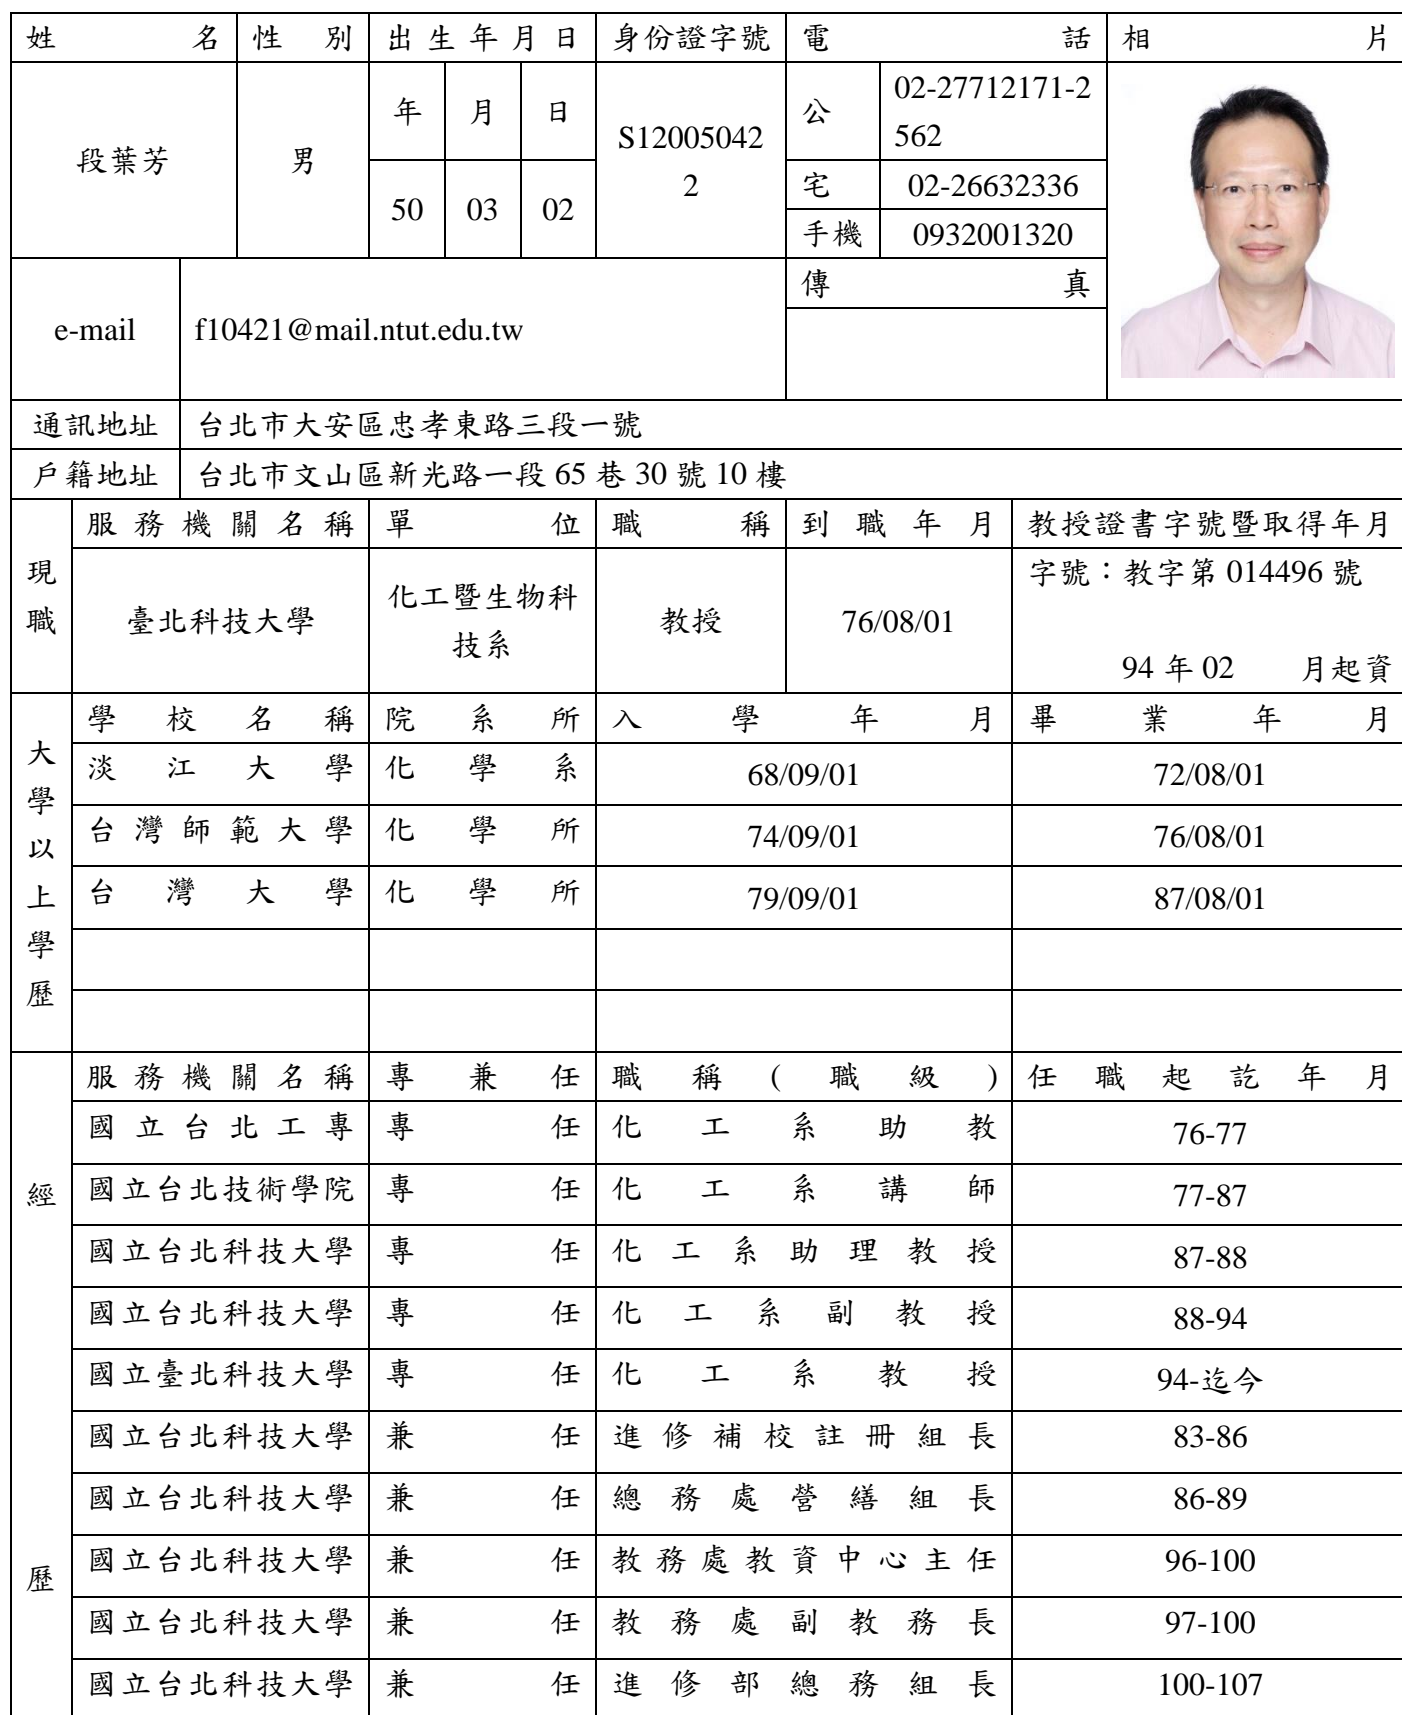 姓名 性別 出生年月日 身份證字號 電話 相片
段葉芳 男 年 月 日 S12005042 公 02-27712171-2
2 562
50 03 02 宅 02-26632336
手機 0932001320
e-mail f10421@mail.ntut.edu.tw 傳真
通訊地址 台北市大安區忠孝東路三段一號
戶籍地址 台北市文山區新光路一段 65 巷 30 號 10 樓
現職 服務機關名稱 單位 職稱 到職年月 教授證書字號暨取得年月
臺北科技大學 化工暨生物科 教授 76/08/01 字號：教字第 014496 號
技系 94 年 02 月起資
大學以上學歷 學校名稱 院系所 入學年月 畢業年月
淡江大學 化學系 68/09/01 72/08/01
台灣師範大學 化學所 74/09/01 76/08/01
台灣大學 化學所 79/09/01 87/08/01
經歷 服務機關名稱 專兼任 職稱(職級) 任職起訖年月
國立台北工專 專任 化工系助教 76-77
國立台北技術學院 專任 化工系講師 77-87
國立台北科技大學 專任 化工系助理教授 87-88
國立台北科技大學 專任 化工系副教授 88-94
國立臺北科技大學 專任 化工系教授 94-迄今
國立台北科技大學 兼任 進修補校註冊組長 83-86
國立台北科技大學 兼任 總務處營繕組長 86-89
國立台北科技大學 兼任 教務處教資中心主任 96-100
國立台北科技大學 兼任 教務處副教務長 97-100
國立台北科技大學 兼任 進修部總務組長 100-107